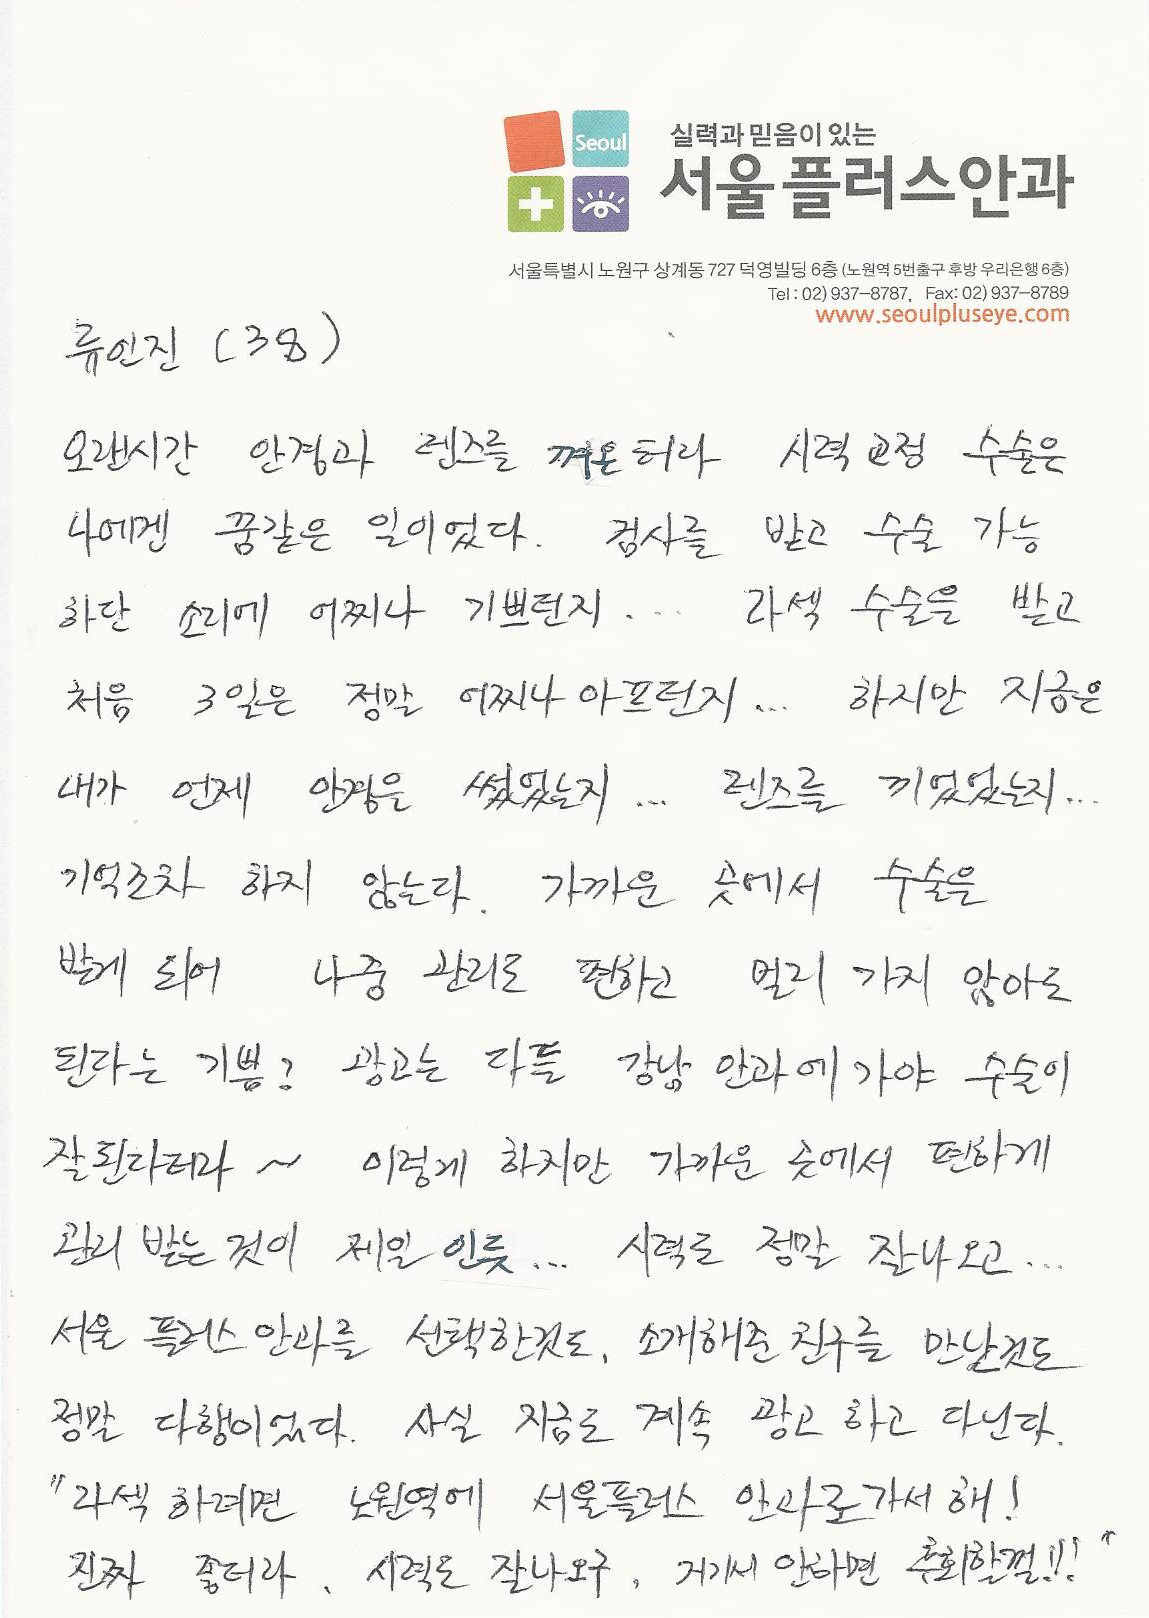 Seoul
실력과 믿음이 있는
서울플러스안과
서울특별시 노원구 상계동 727 덕영빌딩 6층 (노원역 5번출구 후방 우리은행 6층)
Tel : 02) 937-8787, Fax: 02) 937-8789
www.seoulpluseye.com
류인진 (38)
오랜시간 안경과 렌즈를 껴온 허라 시력 교정 수술은
나에겐 꿈같은 일이었다. 검사를 받고 수술 가능
하단 소리에 어찌나 기쁘던지.... 라섹 수술을 받고
처음 3일은 정말 어찌나 아프던지... 하지만 지금은
내가 언제 안경은 썼었는지... 렌즈를 끼었었는지...
기억조차 하지 않는다. 가까운 곳에서 수술은
받게 되어 나중 관리도 편하고 멀리 가지 않아도
된다는 기쁨? 광고는 다들 강남 안과에 가야 수술이
잘된다더라~ 이렇게 하지만 가까운 곳에서 편하게
관리 받는 것이 제일 인듯... 시력도 정말 잘나오고...
서울 플러스 안과를 선택한것도, 소개해준 친구를 만난것도
정말 다행이었다. 사실 지금도 계속 광고 하고 다닌다.
"라섹 하려면 노원역에 서울플러스 안과로 가서 해!
진짜 좋더라, 시력도 잘나오구, 거기서 안하면 후회할껄!!!"